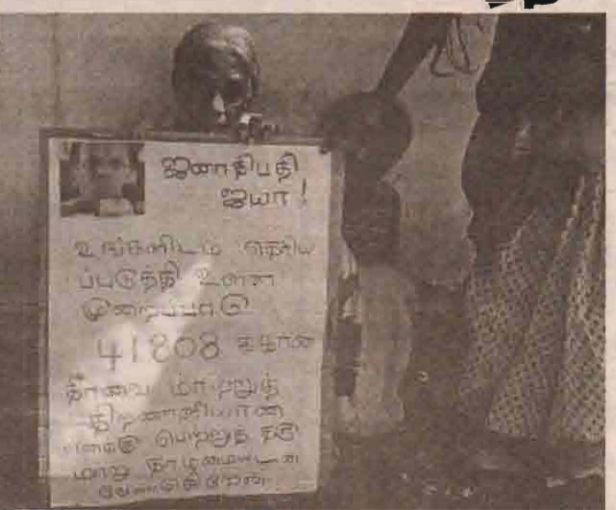 ஜனாதிபதி
ஐயா!
உங்களிடம் தெரிய
ப்படுத்தி உள்ள
முறைப்பாடு
41808 க்கான
தீர்வை மாற்றுத்
திறனாளியான
எனக்கு பெற்றுத் தரு
மாறு தாழ்மையுடன்
வேண்டுகிறேன்.